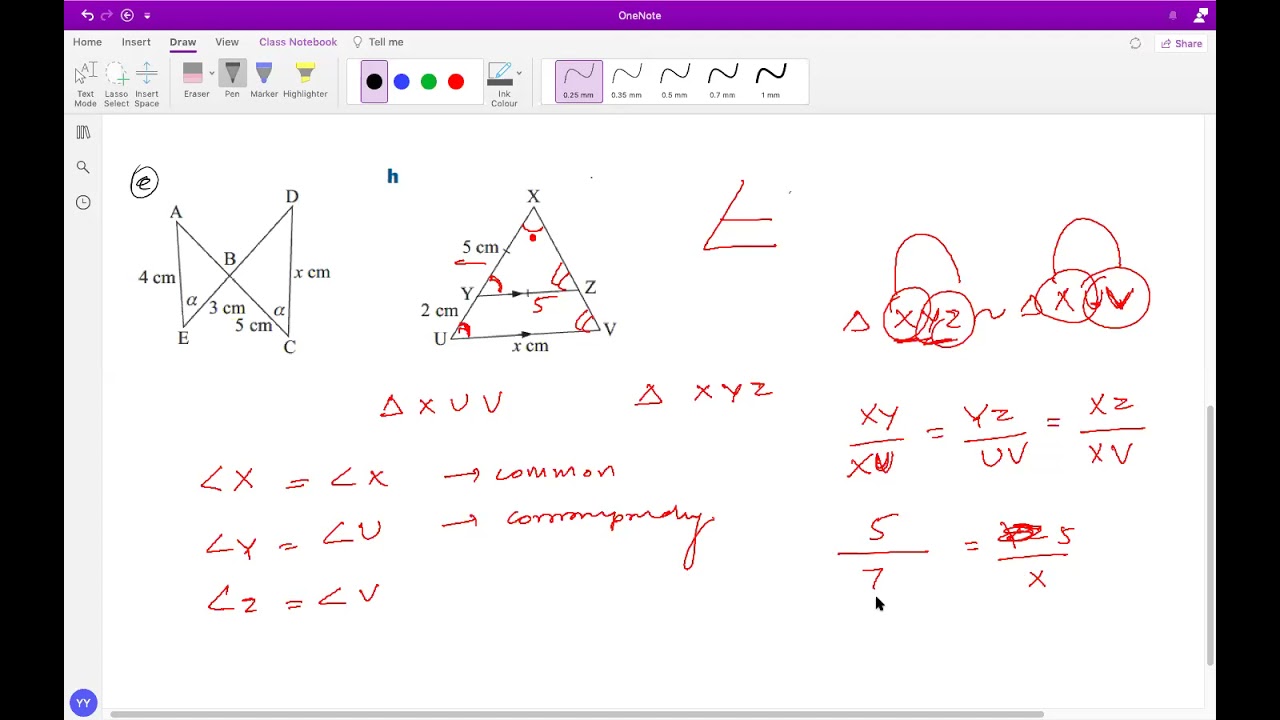 OneNote
Home Insert Draw View Class Notebook Tell me Share
Text Mode Lasso Select Insert Space Eraser Pen Marker Highlighter Ink Colour 0.25 mm 0.35 mm 0.5 mm 0.7 mm 1 mm
e
A
D
B
4 cm
x cm
α
3 cm
α
5 cm
E
C
h
X
5 cm
Y
Z
5
2 cm
U
V
x cm
Δ XYZ ~ Δ XUV
Δ X U V
Δ X Y Z
XY/XU = YZ/UV = XZ/XV
∠X = ∠X → common
∠Y = ∠U →
∠Z = ∠V
5/7 = 5/x
YY